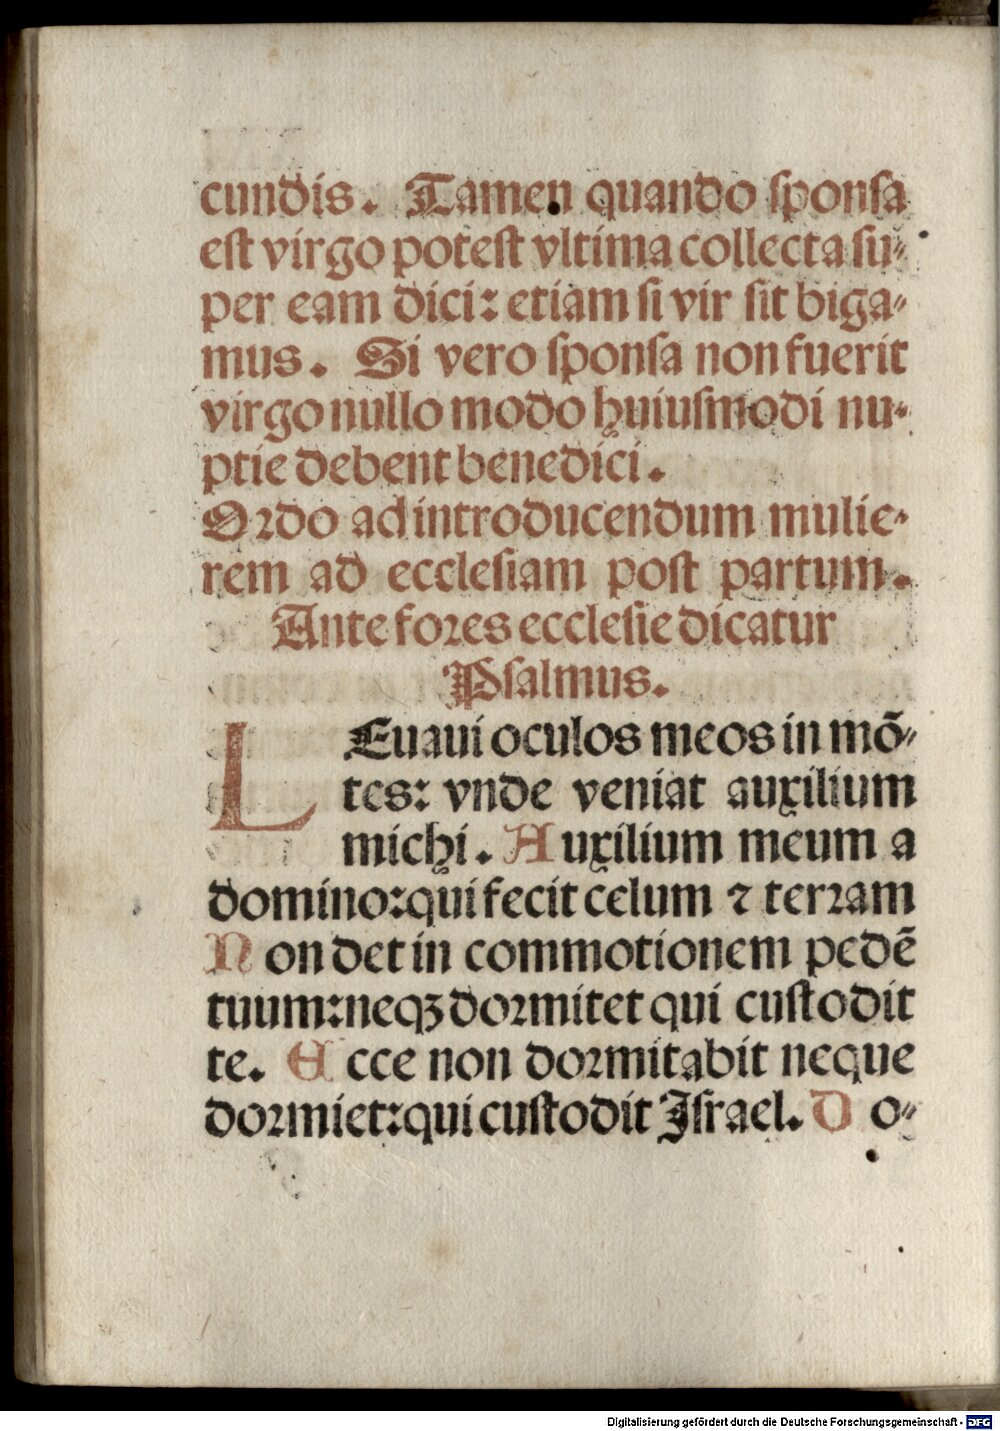 cundis. Tamen quando sponsa
est virgo potest vltima collecta su-
per eam dici: etiam si vir sit biga-
mus. Si vero sponsa non fuerit
virgo nullo modo huiusmodi nu-
ptie debent benedici.
Ordo ad introducendum mulie-
rem ad ecclesiam post partum.
Ante fores ecclesie dicatur
Psalmus.
LEuaui oculos meos in mō-
tes: vnde veniat auxilium
michi. Auxilium meum a
domino: qui fecit celum ⁊ terram
Non det in commotionem pedē
tuum: neqꝫ dormitet qui custodit
te. Ecce non dormitabit neque
dormiet: qui custodit Israel. Do-
Digitalisierung gefördert durch die Deutsche Forschungsgemeinschaft - DFG